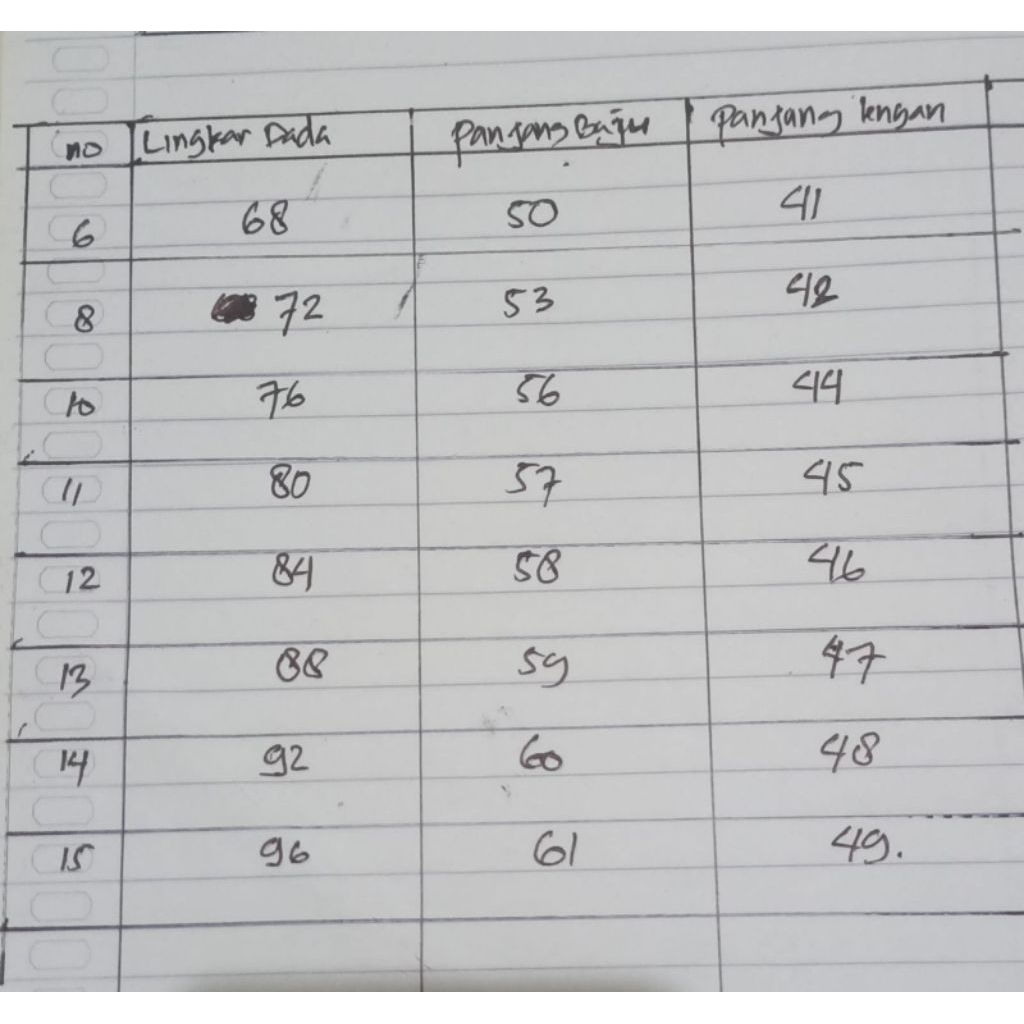 no Lingkar Dada Panjang Baju Panjang lengan
6 68 50 41
8 72 53 42
10 76 56 44
11 80 57 45
12 84 58 46
13 88 59 47
14 92 60 48
15 96 61 49.